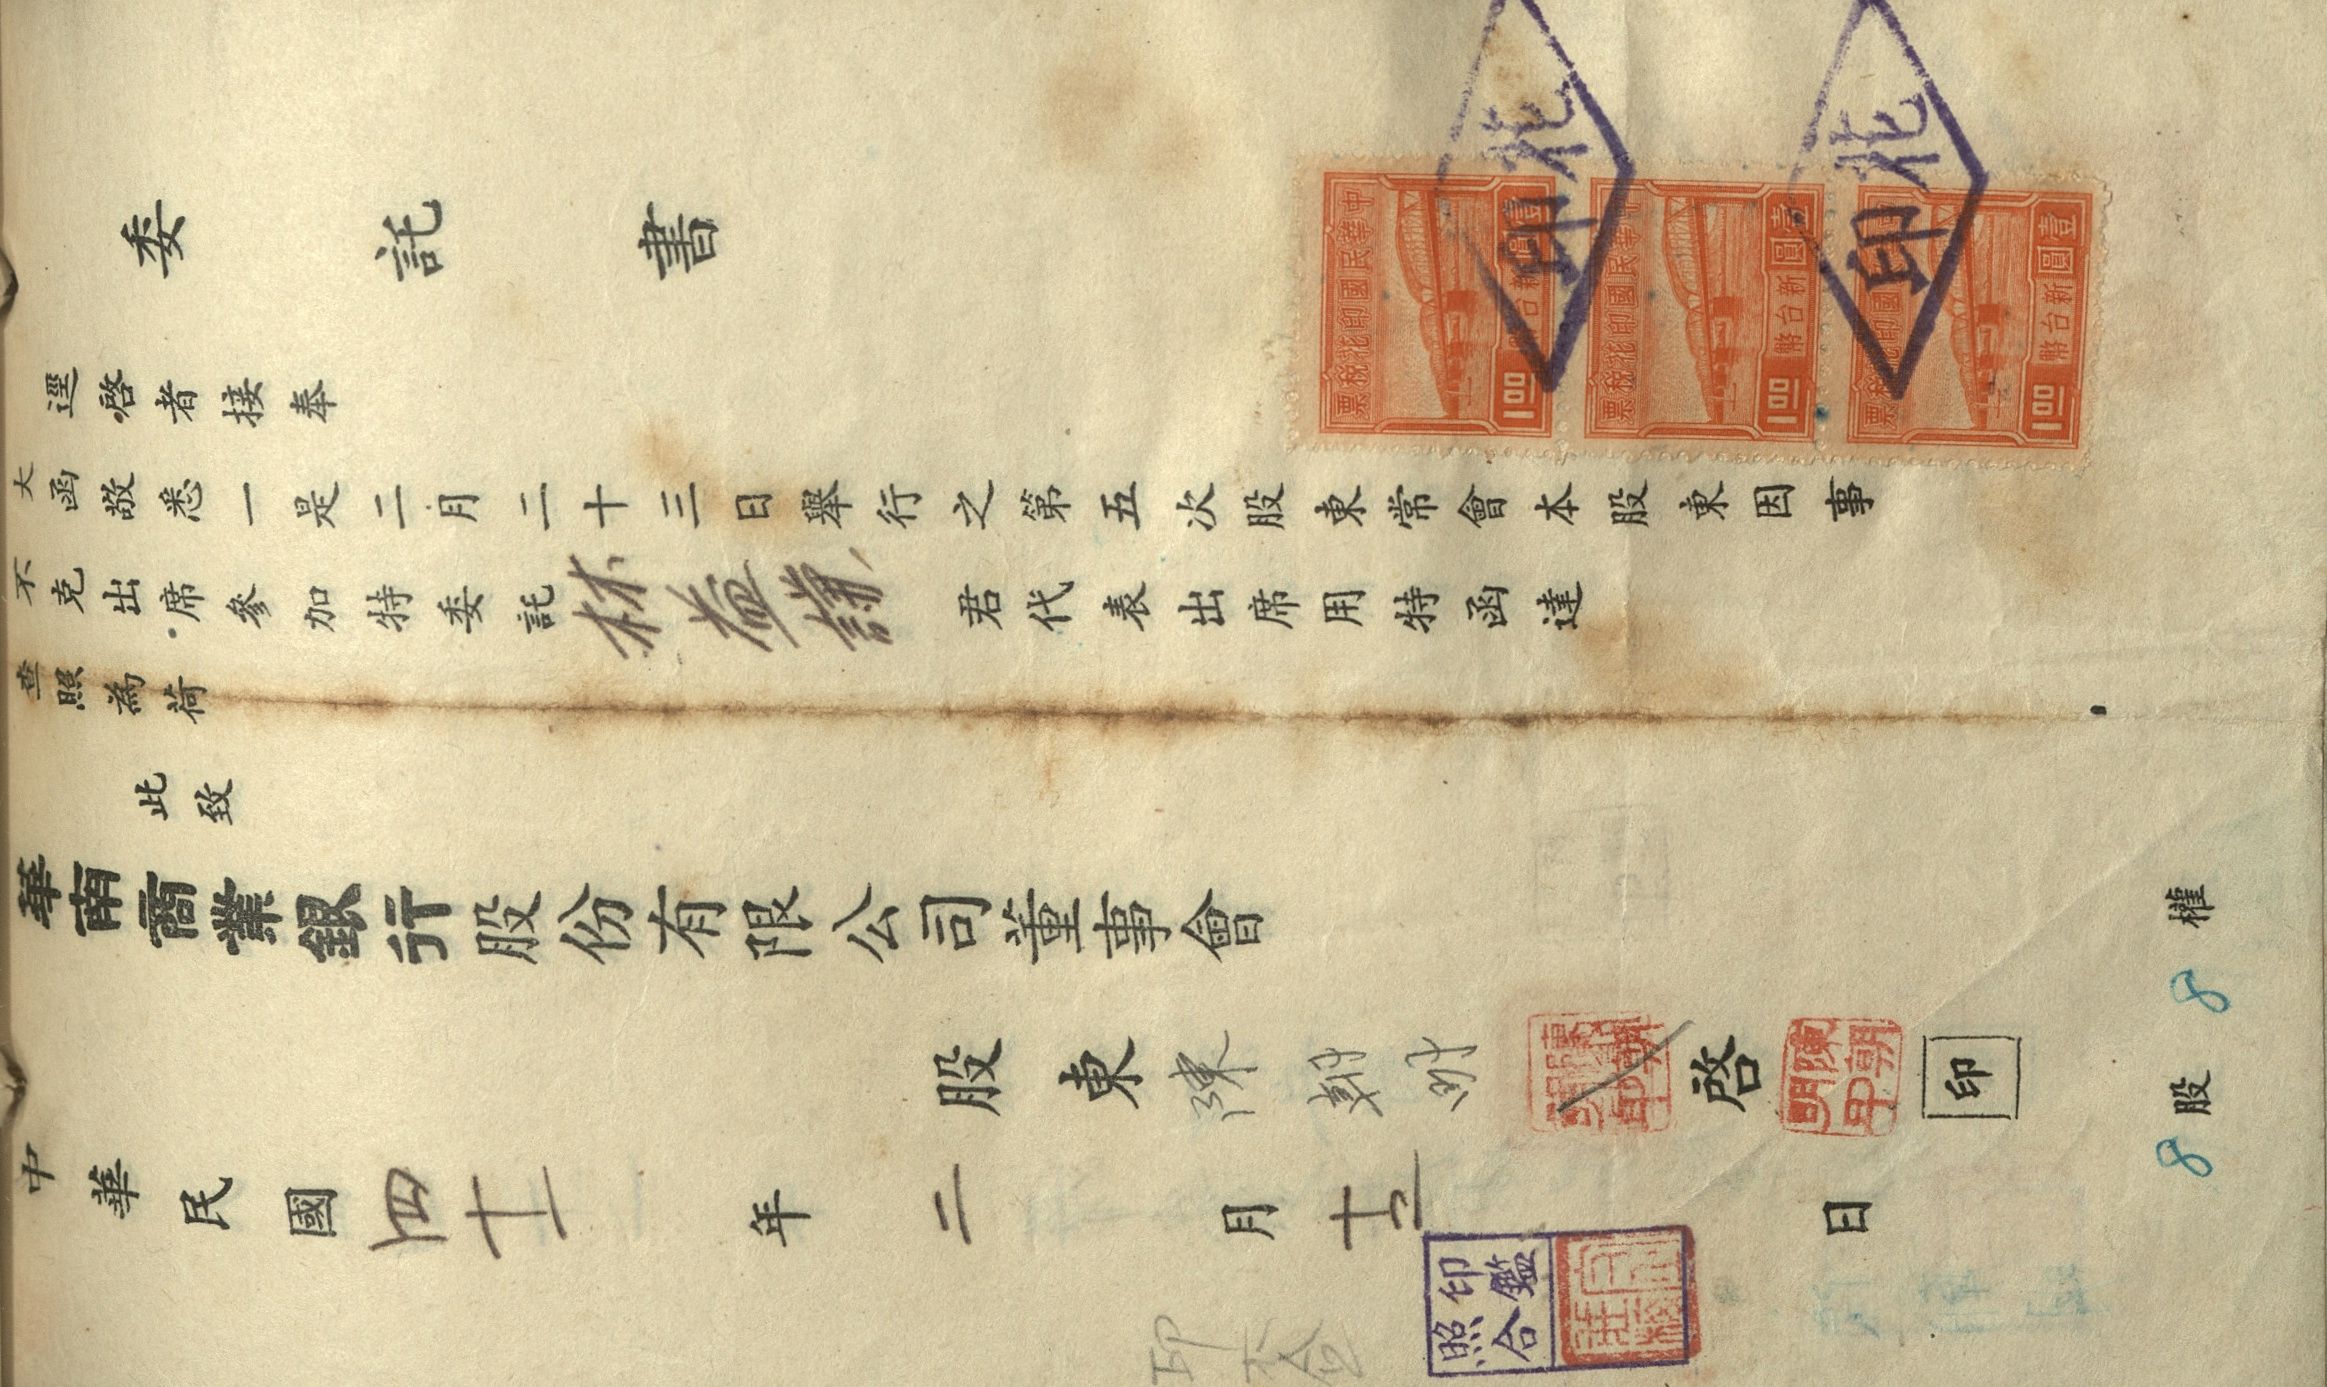 委託書
逕啓者接奉
大函敬悉一是二月二十三日舉行之第五次股東常會本股東因事
不克出席參加特委託林益謙君代表出席用特函達
查照為荷
此致
華南商業銀行股份有限公司董事會
股東陳朝明啓印
陳朝明印
中華民國四十一年二月十五日
8股8權
印鑑照合
中華民國印花稅票
壹圓新台幣
1.00
中華民國印花稅票
壹圓新台幣
1.00
壹圓新台幣
1.00
印花
印花